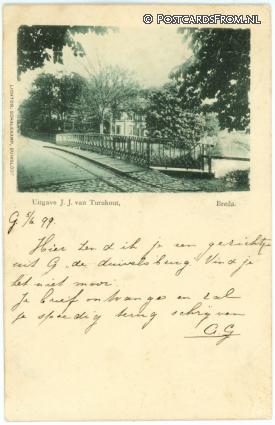 © POSTCARDSFROM.NL
Uitgave J. J. van Turnhout,
Breda.
G 5/6 99
Hier zend ik je een gezichtje
uit G. de duivelsburg Vind je
het niet mooi.
Je brief ontvangen en zal
je spoedig terug schrijven
C.G